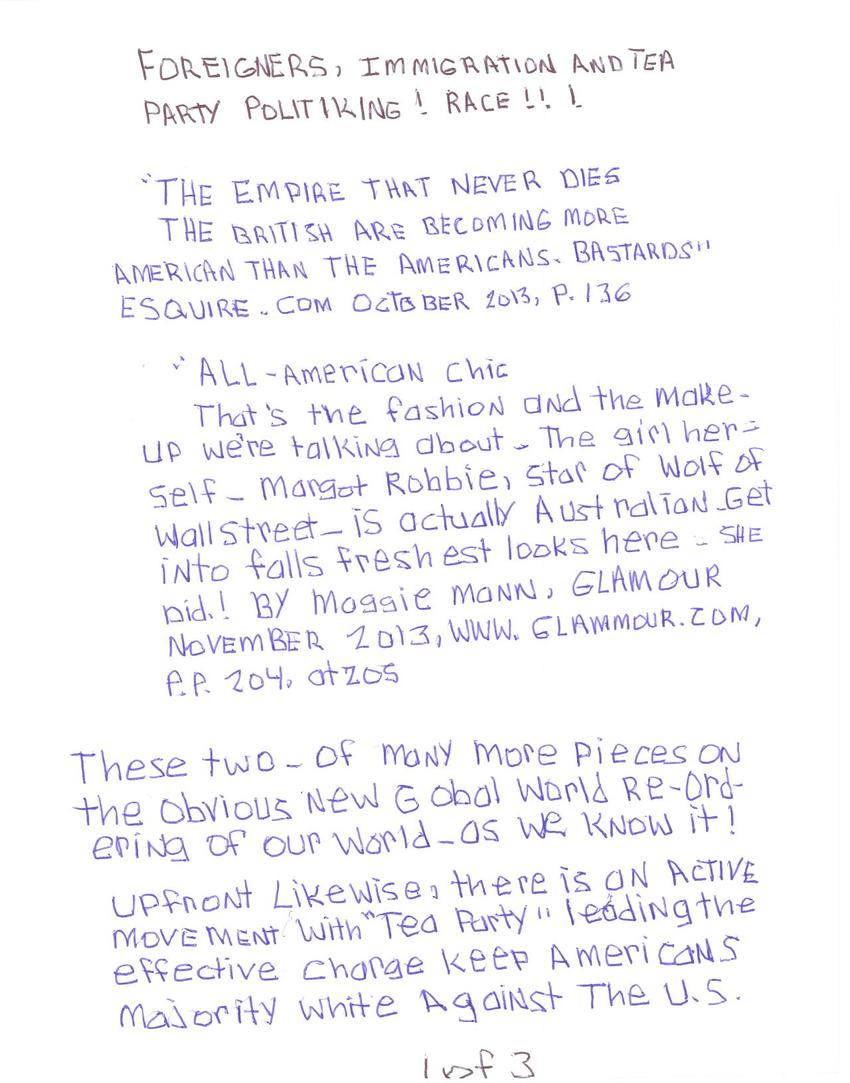 FOREIGNERS, IMMIGRATION AND TEA
PARTY POLITIKING! RACE!!!
"THE EMPIRE THAT NEVER DIES
THE BRITISH ARE BECOMING MORE
AMERICAN THAN THE AMERICANS. BASTARDS"
ESQUIRE.COM OCTOBER 2013, P.136
"ALL-AMERICAN CHIC
That's the fashion and the make-
up we're talking about - The girl her=
self - Margot Robbie, star of Wolf of
Wall street - is actually Australian. Get
into falls freshest looks here - SHE
DID.! BY Maggie Mann, GLAMOUR
NOVEMBER 2013, WWW. GLAMMOUR.COM,
P.P. 204, at 205
These two - of many more pieces on
the obvious New Gobal World Re-Ord-
ering of our World - as we know it!
Upfront Likewise, there is an ACTIVE
MOVEMENT with "Tea Party" leading the
effective charge keep Americans
Majority White Against The U.S.
1 of 3